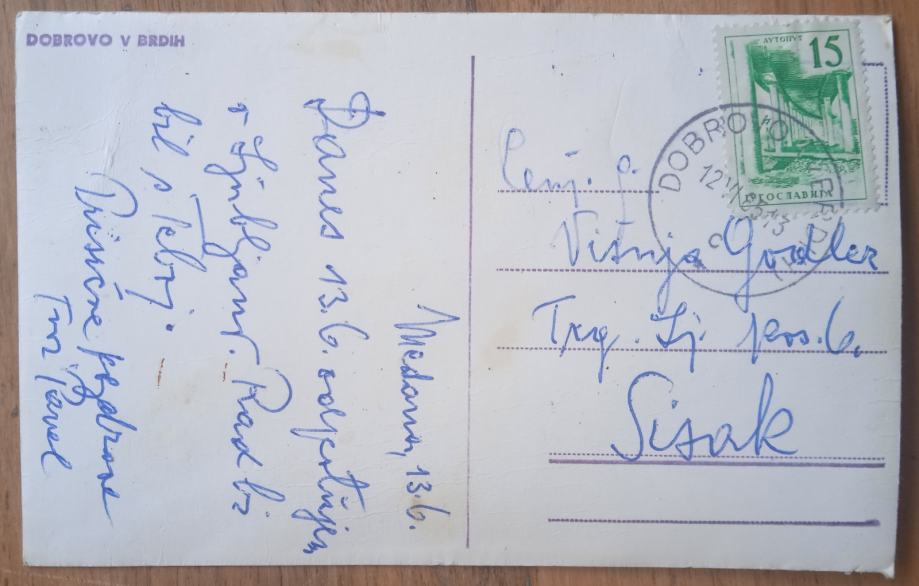 DOBROVO V BRDIH
Medana, 13.6.
Danes 13.6. odpotujem
v Ljubljano. Rad bi
bil s Teboj.
Prisrčne pozdrave
Tvoj Pavel
АУТОПУТ
15
ЈУГОСЛАВИЈА
DOBROVO V BRDIH
Cenj. g.
Višnja Gordler
Trg. Lj. pos. 6.
Sisak